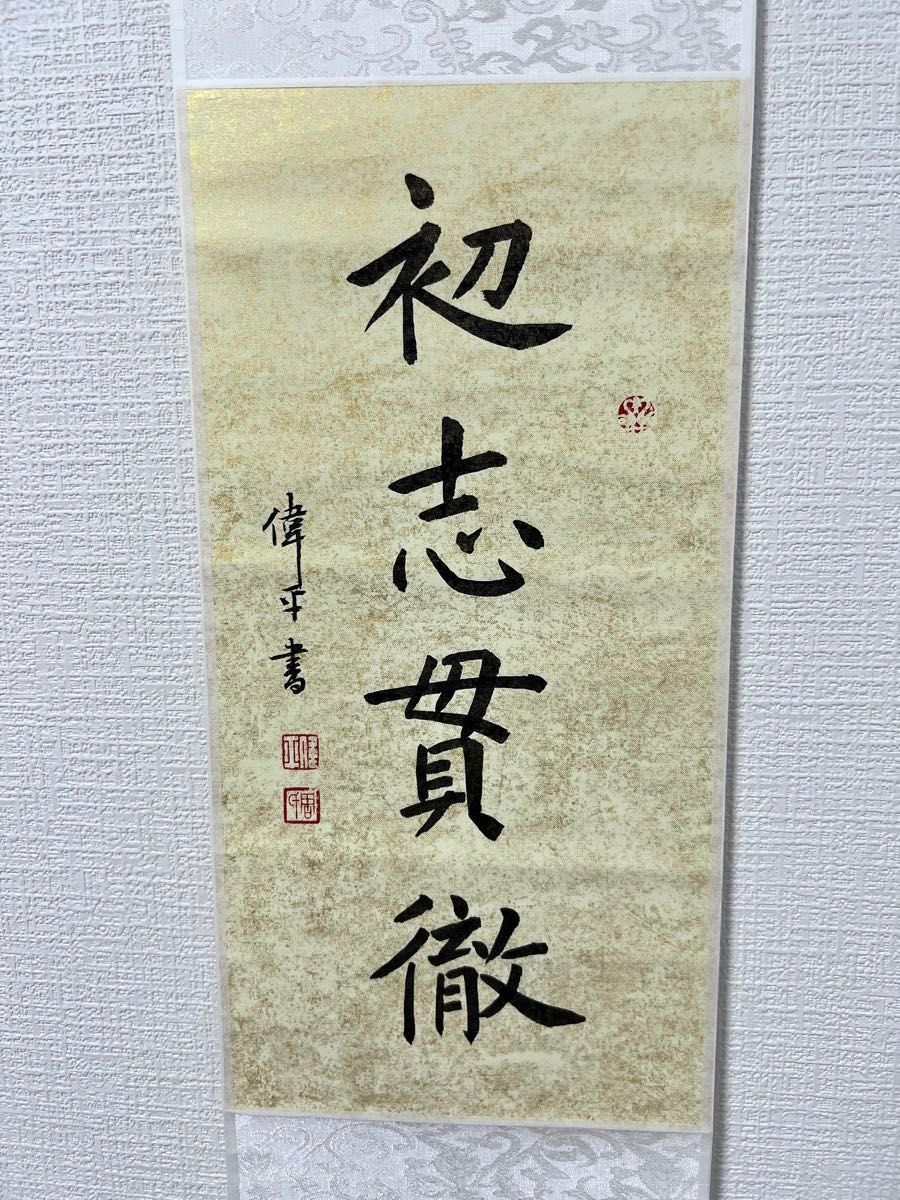 初志貫徹
偉平書